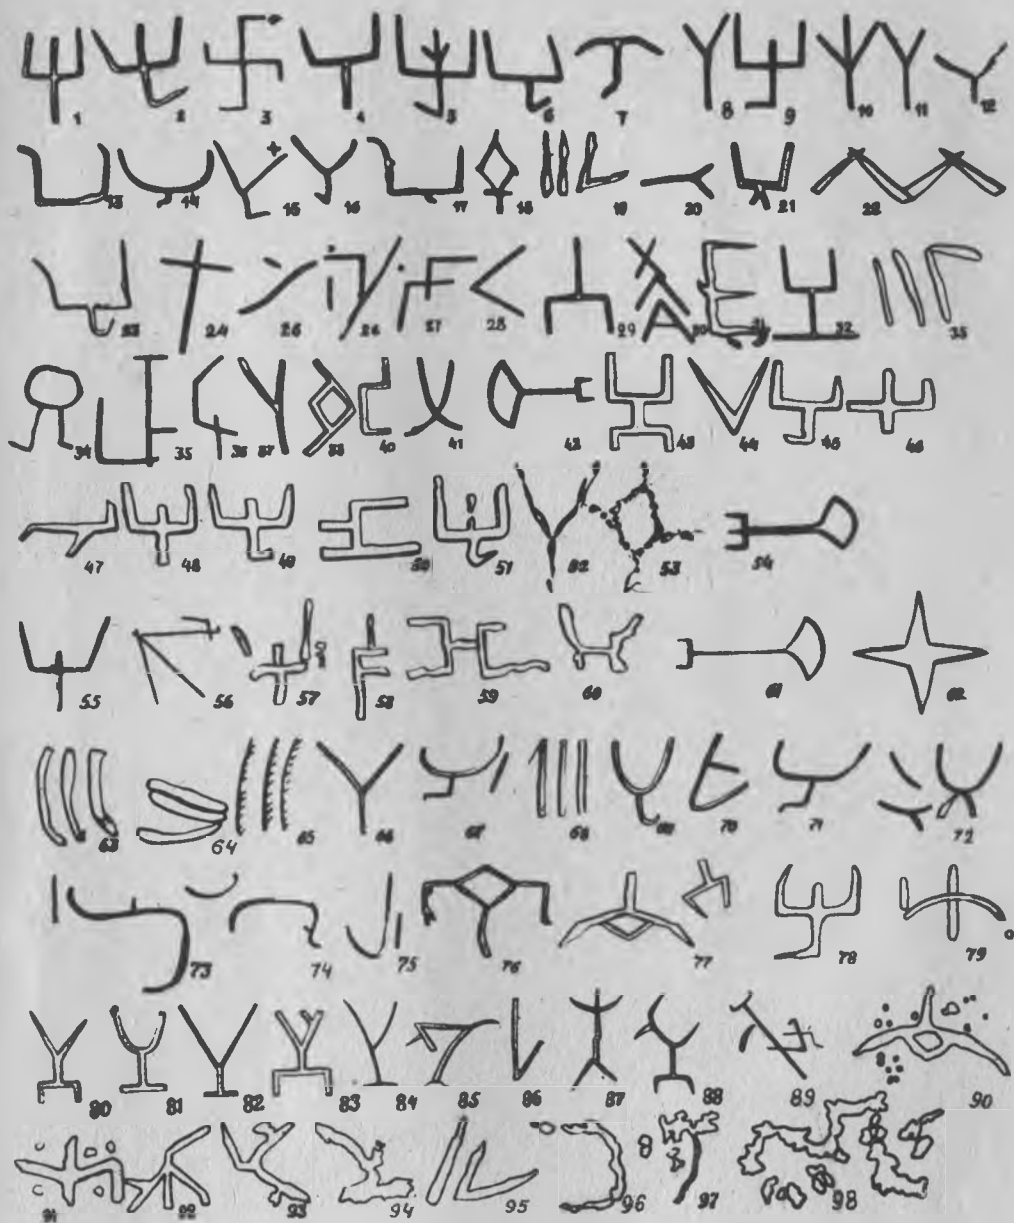 1 2 3 4 5 6 7 8 9 10 11 12
13 14 15 16 17 18 19 20 21 22
23 24 25 26 27 28 29 30 31 32 33
34 35 36 37 38 40 41 42 43 44 45 46
47 48 49 50 51 52 53 54
55 56 57 58 59 60 61 62
63 64 65 66 67 68 69 70 71 72
73 74 75 76 77 78 79
80 81 82 83 84 85 86 87 88 89 90
91 92 93 94 95 96 97 98